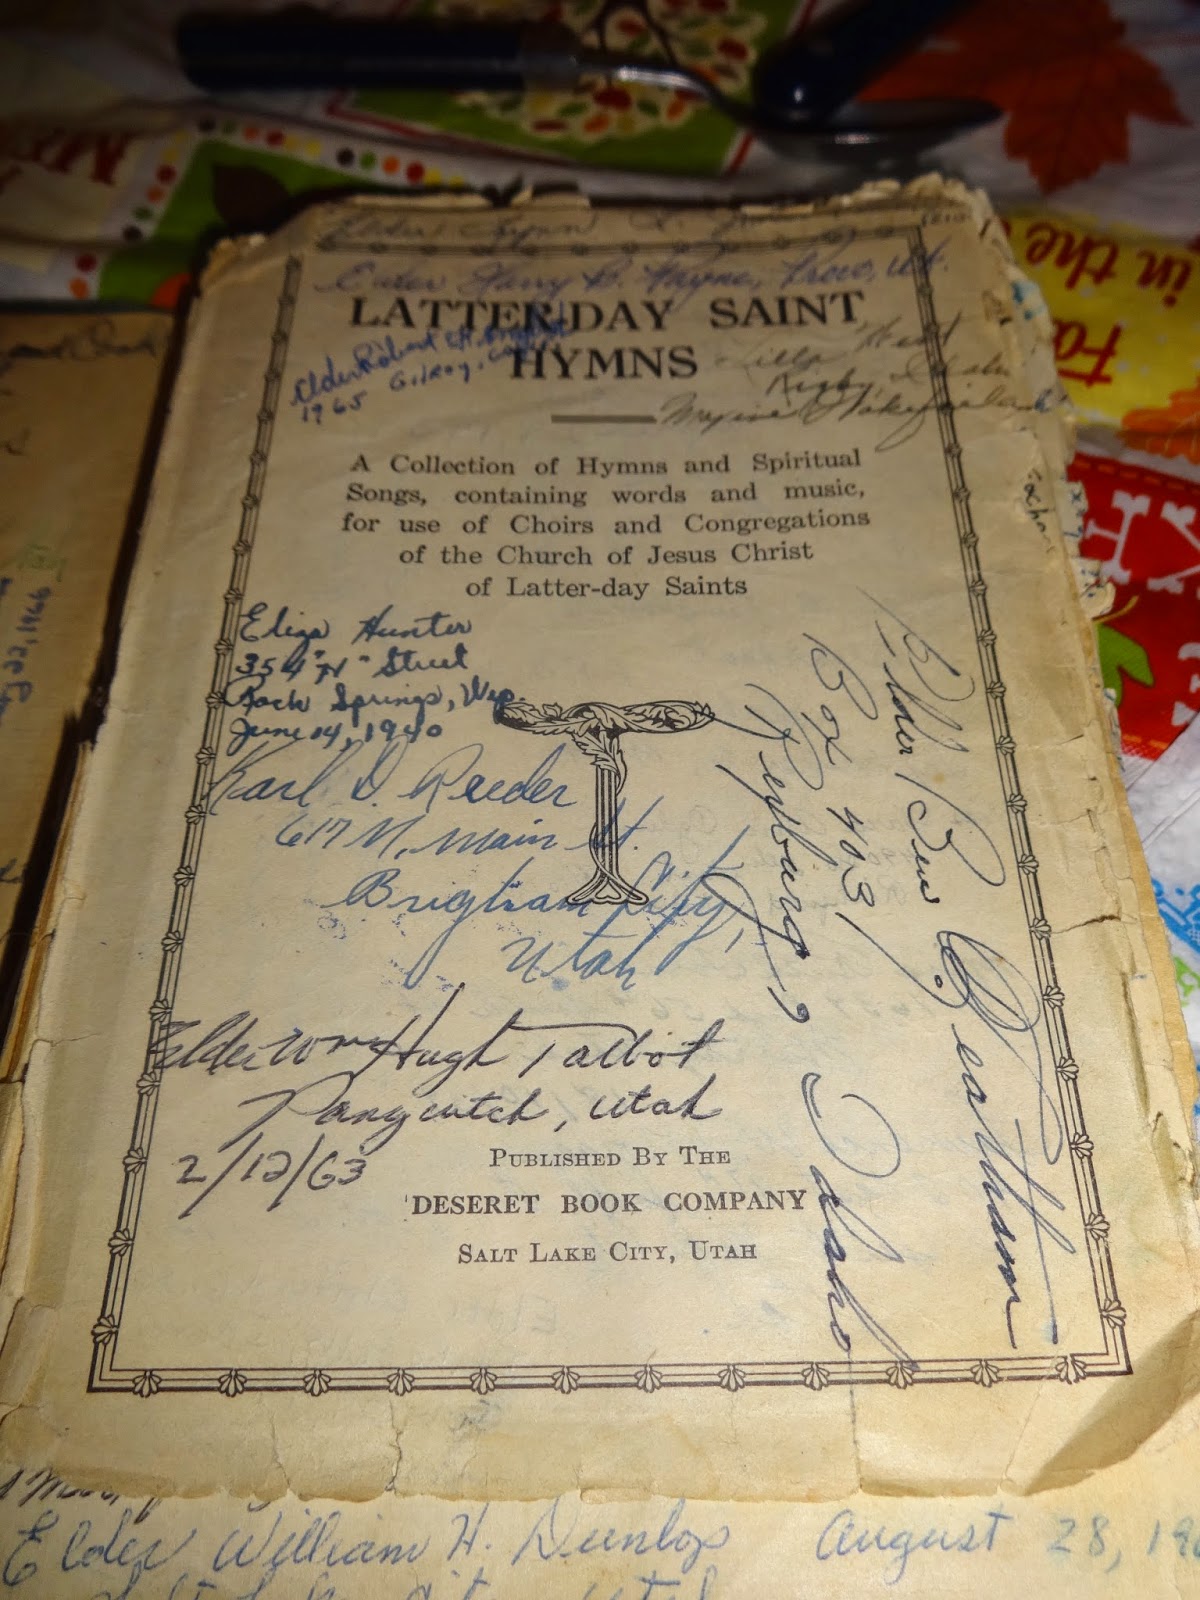 Elder Lynn
Elder Harry B. Payne, Provo, Ut.
LATTER-DAY SAINT
HYMNS
Elder Robert
Gilroy, Calif
1965
Lilla West
Rigby, Idaho
Maxine Wakefield
A Collection of Hymns and Spiritual
Songs, containing words and music,
for use of Choirs and Congregations
of the Church of Jesus Christ
of Latter-day Saints
Eliza Hunter
354 "N" Street
Rock Springs, Wyo.
June 14, 1940
Karl D. Reeder
617 N. Main St.
Brigham City,
Utah
Elder Wm Hugh Talbot
Panguitch, Utah
2/12/63
Elder Ben
Box 403,
Rexburg,
Idaho
PUBLISHED BY THE
DESERET BOOK COMPANY
SALT LAKE CITY, UTAH
Elder William H. Dunlop August 28, 19
22, 1966
in the